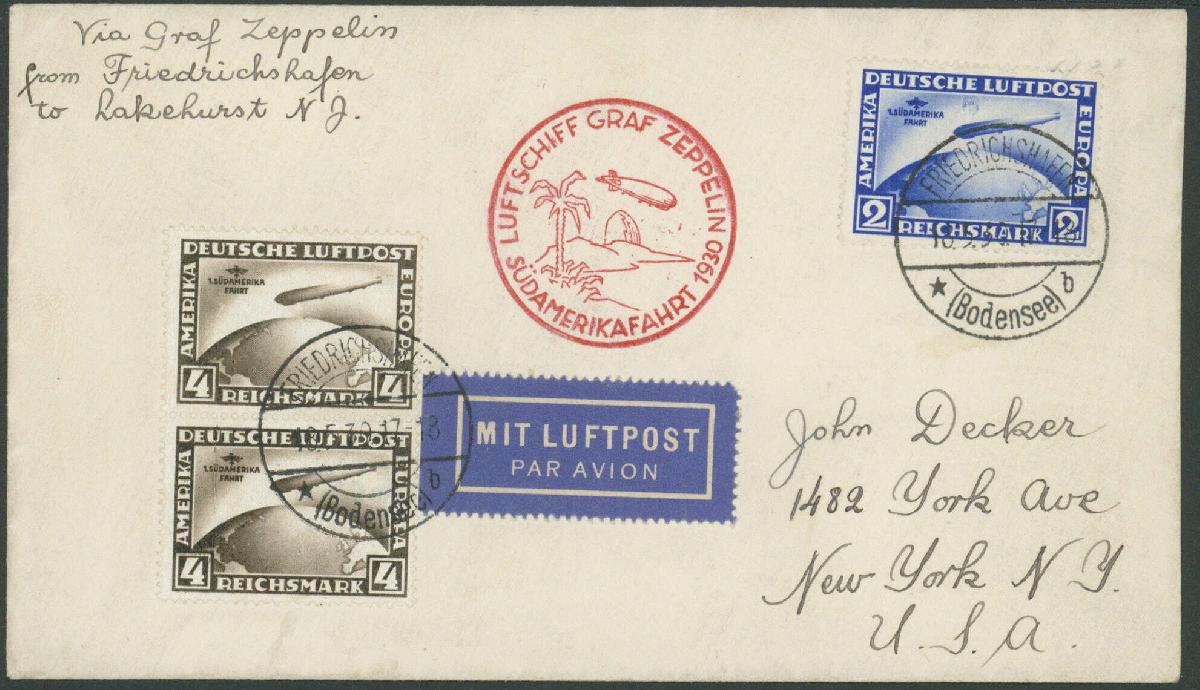 Via Graf Zeppelin
from Friedrichshafen
to Lakehurst N J.
LUFTSCHIFF GRAF ZEPPELIN
SÜDAMERIKAFAHRT 1930
DEUTSCHE LUFTPOST
AMERIKA
EUROPA
1.SÜDAMERIKA
FAHRT
2 REICHSMARK 2
FRIEDRICHSHAFEN
(Bodensee) b
DEUTSCHE LUFTPOST
AMERIKA
EUROPA
1.SÜDAMERIKA
FAHRT
4 REICHSMARK 4
DEUTSCHE LUFTPOST
AMERIKA
EUROPA
1.SÜDAMERIKA
FAHRT
4 REICHSMARK 4
FRIEDRICHSHAFEN
17-18
(Bodensee) b
MIT LUFTPOST
PAR AVION
John Decker
1482 York Ave
New York N Y.
U.S.A.